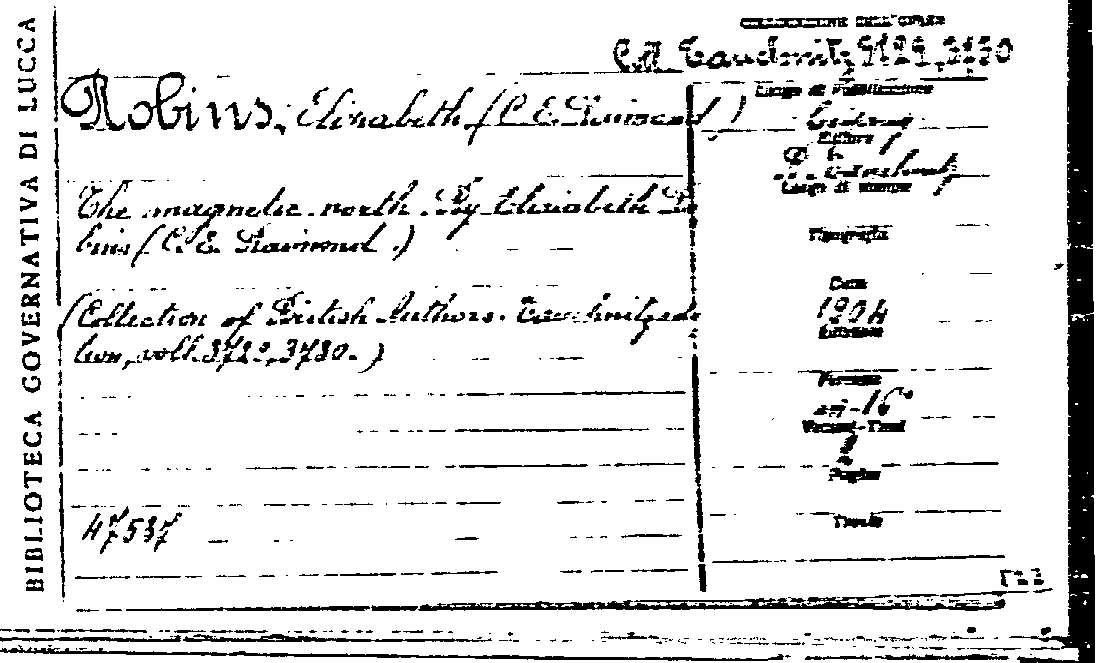 BIBLIOTECA GOVERNATIVA DI LUCCA
DELL'OPERA
Tauchnitz 3729, 3730
Robins, Elizabeth (C. E. Raimond)
Luogo di Pubblicazione
Editore
The magnetic north. By Elizabeth Ro
bins (C. E. Raimond.)
Luogo di stampa
Tipografia
Data
1904
(Collection of British Authors. Tauchnitz edi
tion, voll. 3729, 3730.)
Edizione
Formato
in-16°
Volumi-Tomi
2
Pagine
Tavole
47537